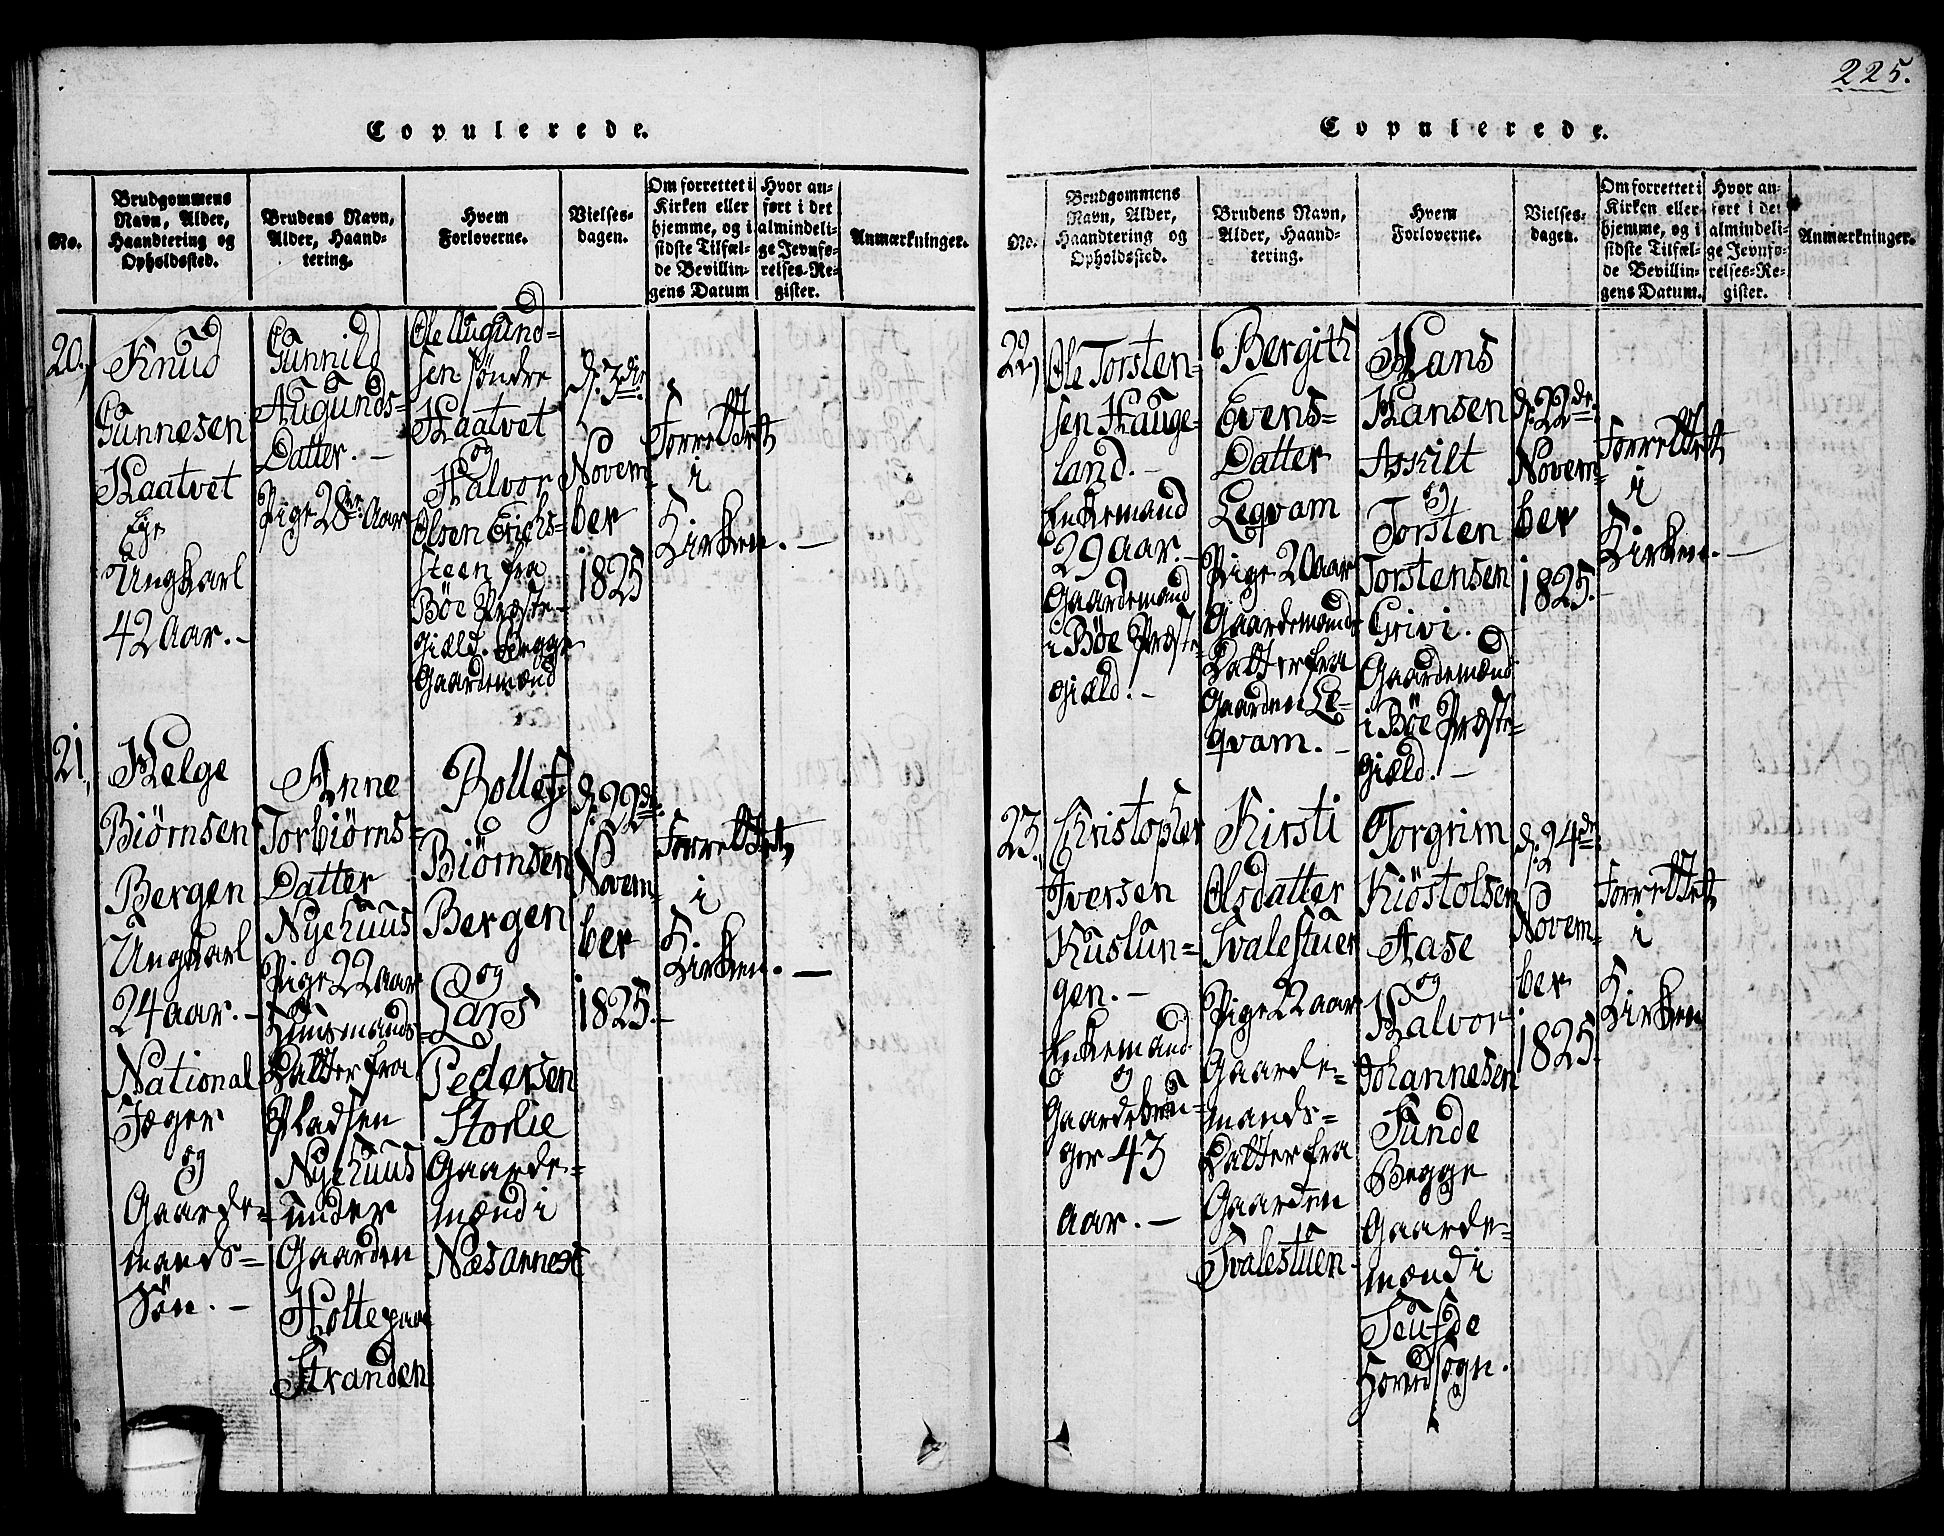 225.
Copulerede.
No.
Brudgommens
Navn, Alder,
Haandtering og
Opholdssted.
Brudens Navn,
Alder, Haand-
tering.
Hvem
Forloverne.
Vielses-
dagen.
Om forrettet i
Kirken eller
hjemme, og i
sidste Tilfæl-
de Bevillin-
gens Datum
Hvor an-
ført i det
almindeli-
ge Jevnfø-
relses-Re-
gister.
Anmærkninger.
20,
Knud
Gunnesen
Haatvet
Eje
Ungkarl
42 Aar.-
Gunnild
Augunds-
Datter.-
Pige 28de Aar
Ole Augund-
sen søndre
Haatvet
og
Halvor
Olsen Erichs-
steen fra
Bøe Præste-
gield. Begge
Gaardemænd
d. 3die
Novem-
ber
1825
Forrettet
i
Kirken.-
21,
Helge
Biørnsen
Bergen
Ungkarl
24 aar.-
National
Jæger
og
Gaarde-
mands-
Søn.-
Anne
Torbiørns-
Datter
Nyehuus
Pige 22 aar
Huusmands-
Datter fra
Pladsen
Nyehuus
under
Gaarden
Holte paa
Stranden
Rollef
Biørnsen
Bergen
og
Lars
Pedersen
Storlie
Gaarde-
mænd i
Næsannext
d. 22de
Novem-
ber
1825.-
Forrettet
i
Kirken.-
Copulerede.
No.
Brudgommens
Navn, Alder,
Haandtering og
Opholdssted.
Brudens Navn,
Alder, Haand-
tering.
Hvem
Forloverne.
Vielses-
dagen.
Om forrettet i
Kirken eller
hjemme, og i
sidste Tilfæl-
de Bevillin-
gens Datum.
Hvor an-
ført i det
almindeli-
ge Jevnfø-
relses-Re-
gister.
Anmærkninger.
22,
Ole Torsten-
sen Hauge-
land.-
Enkemand
29 aar.-
Gaardemand
i Bøe Præste-
gield.-
Bergith
Evens-
Datter
Leqvam
Pige 20 aar
Gaardemands
Datter fra
Gaarden Le-
qvam.-
Hans
Hansen
Askilt
og
Torsten
Torstensen
Grivi.
Gaardemænd
i Bøe Præste-
gield.-
d. 22de
Novem-
ber
1825.-
Forrettet
i
Kirken.-
23,
Christopher
Iversen
Kuslun-
gen.-
Enkemand
og
Gaardebru-
ger 43
aar.-
Kirsti
Olsdatter
Svalestuen
Pige 22 aar
Gaarde-
mands-
Datter fra
Gaarden
Svalestuen
Torgrim
Kiøstolsen
Aase
og
Halvor
Johannesen
Funde
Begge
Gaarde-
mænd i
Seufde
Hovedsogn.
d. 24de
Novem-
ber
1825.
Forrettet
i
Kirken